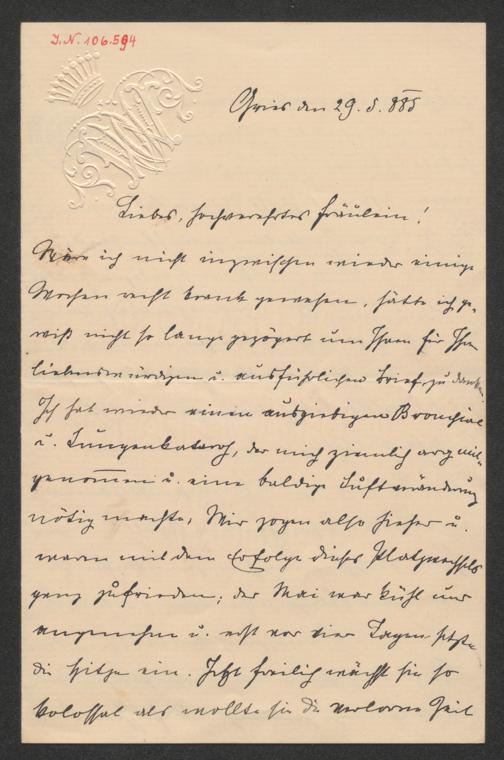 J.N. 106.594
Gries den 29. 5. 885
Liebes, hochverehrtes Fräulein!
Wäre ich nicht inzwischen wieder einige
Wochen recht krank gewesen, hätte ich ge-
wiß nicht so lange gezögert um Ihnen für Ihren
liebenswürdigen u. ausführlichen Brief zu danken.
Ich hat wieder einen ausgiebigen Bronchial
u. Lungenkatarrh, der mich ziemlich arg mit-
genommen u. eine baldige Luftveränderung
nötig machte. Wir zogen also hieher u.
waren mit dem Erfolge dieses Platzwechsels
ganz zufrieden; der Mai war kühl und
angenehm u. erst vor vier Tagen setzte
die Hitze ein. Jetzt freilich wächst sie so
kolossal als wollte sie die verlorene Zeit